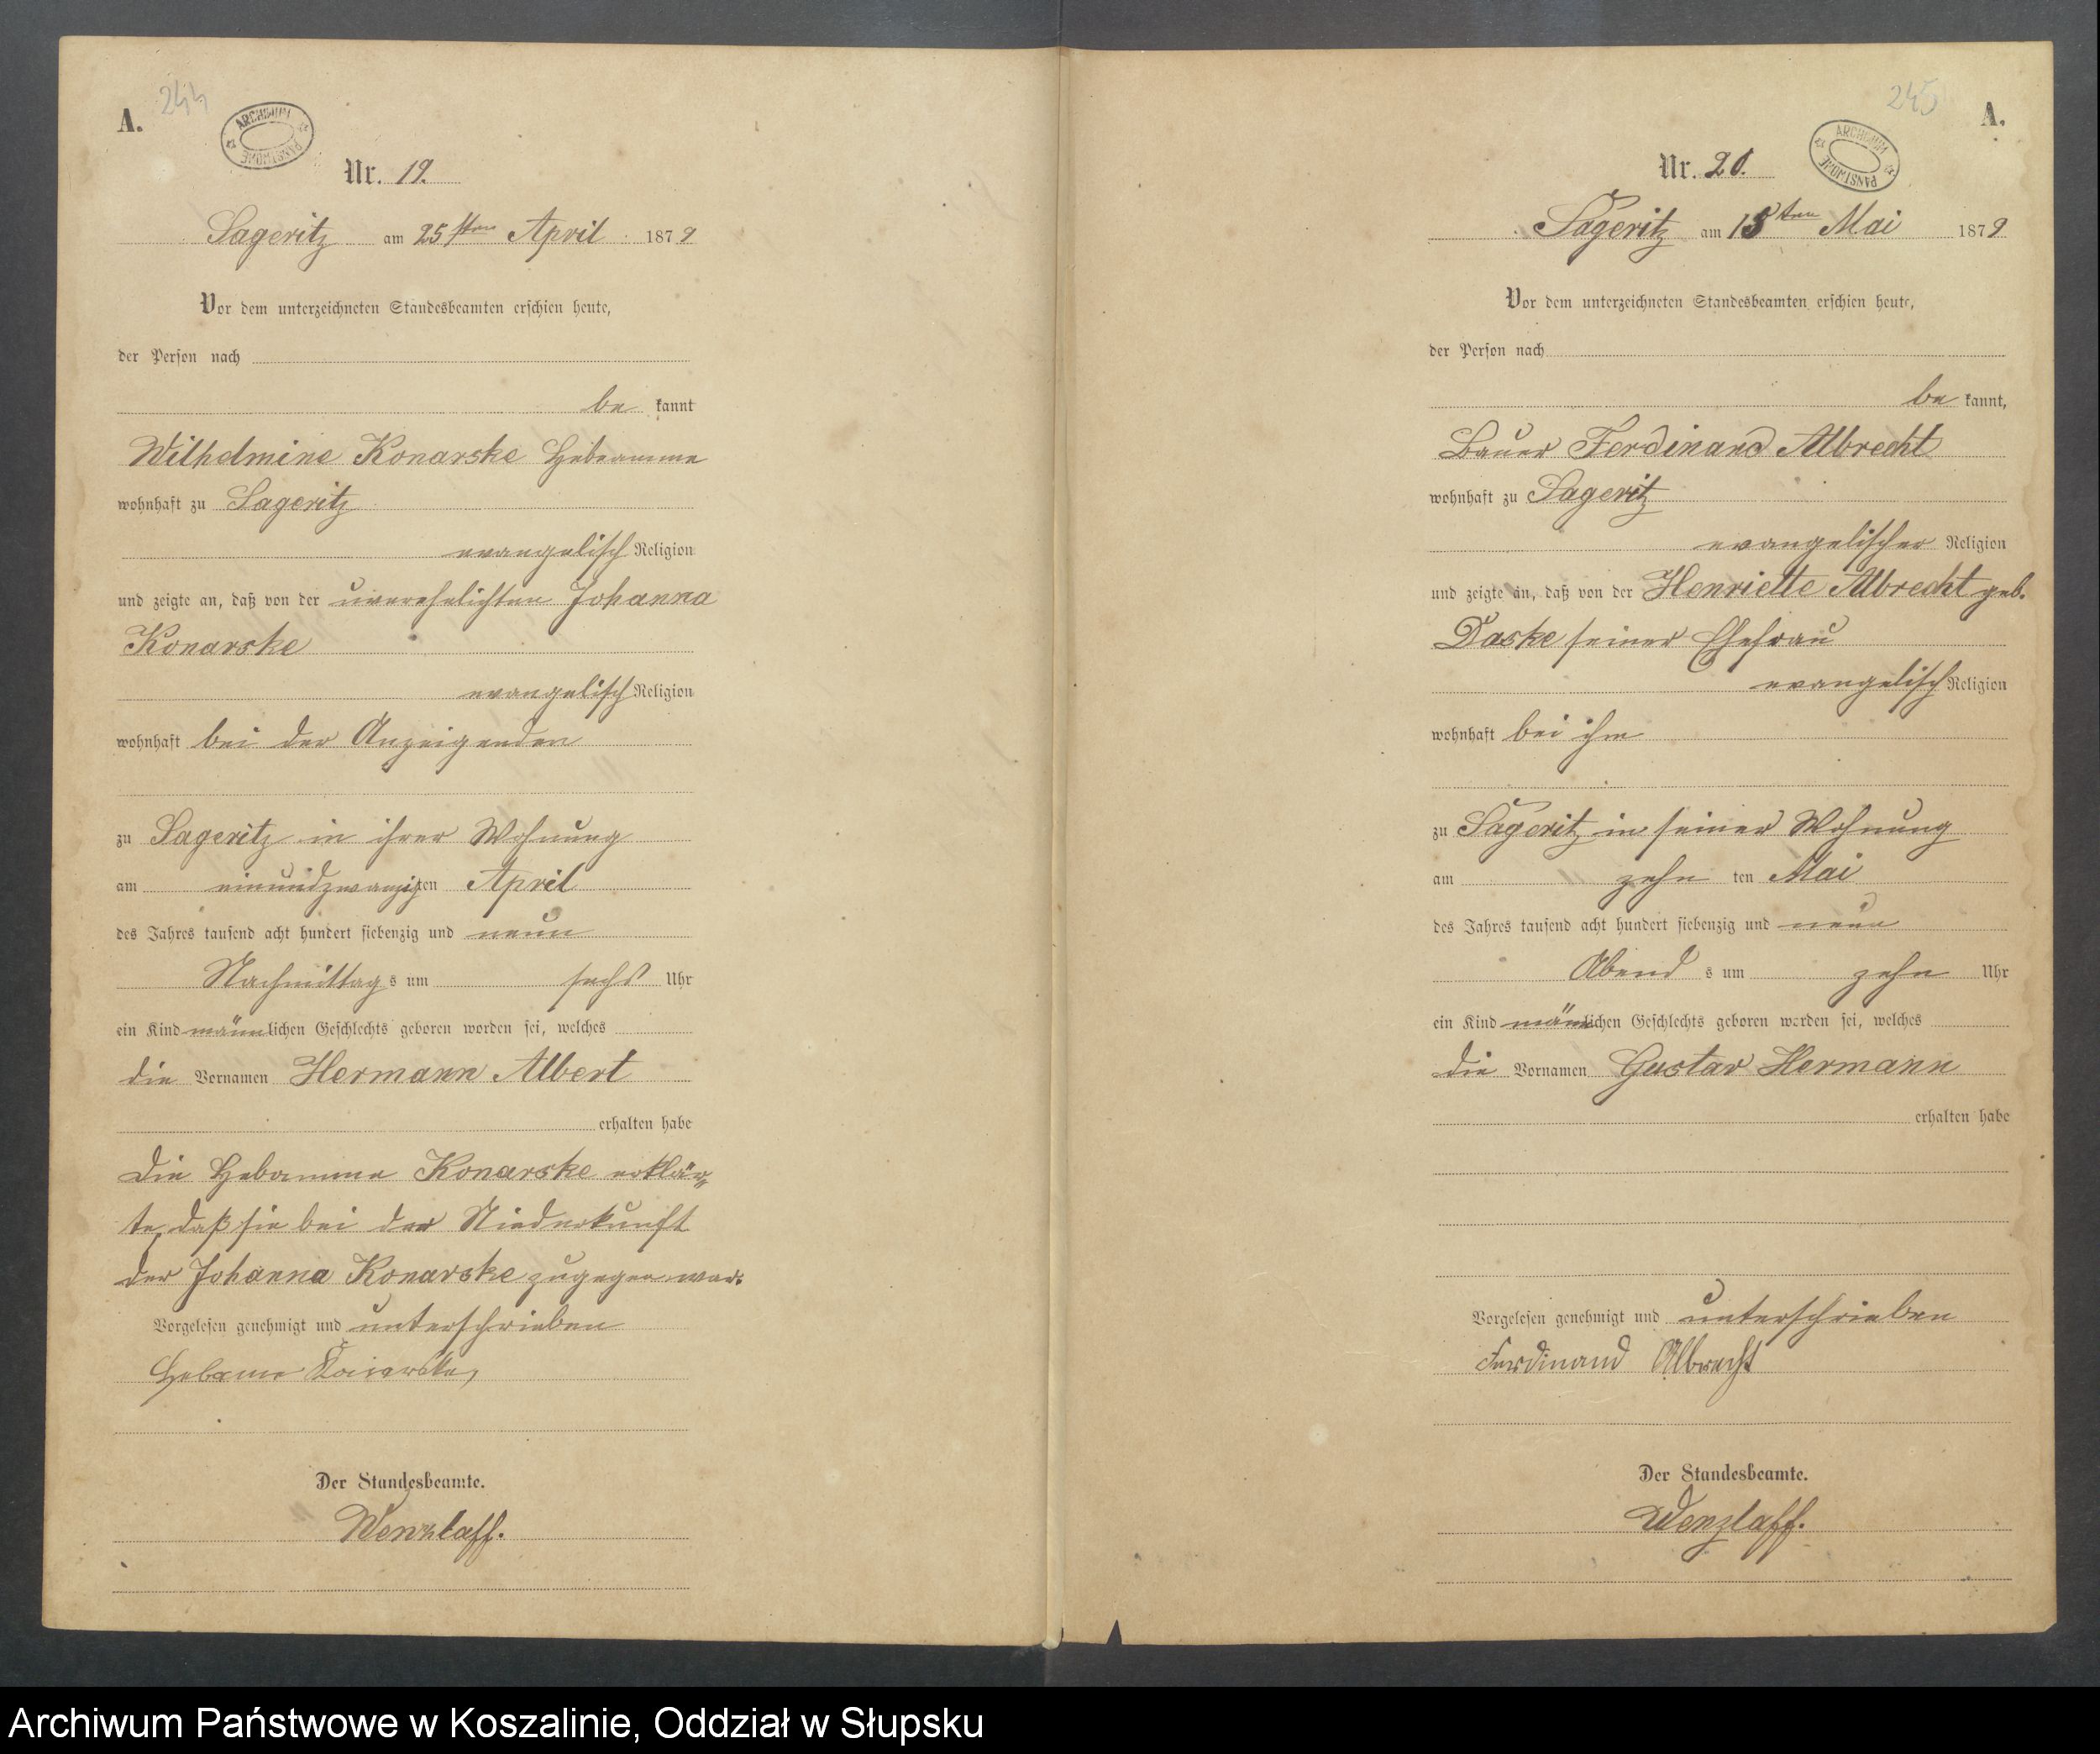 A.
244
ARCHIWUM PAŃSTWOWE
Nr. 19.
Sageritz am 25sten April 1879
Vor dem unterzeichneten Standesbeamten erschien heute,
der Person nach
be kannt
Wilhelmine Konarske Hebeamme
wohnhaft zu Sageritz
evangelisch Religion
und zeigte an, daß von der unverehelichten Johanna
Konarske
evangelisch Religion
wohnhaft bei der Anzeigenden
zu Sageritz in ihrer Wohnung
am einundzwanzigten April
des Jahres tausend acht hundert siebenzig und neun
Nachmittag s um sechs Uhr
ein Kind männlichen Geschlechts geboren worden sei, welches
die Vornamen Hermann Albert
erhalten habe
Die Hebamme Konarske erklär-
te, daß sie bei der Niederkunft
der Johanna Konarske zugegen war.
Vorgelesen genehmigt und unterschrieben
Konarske
Der Standesbeamte.
Wenzlaff.
245
A.
ARCHIWUM PAŃSTWOWE
Nr. 20.
Sageritz am 15ten Mai 1879
Vor dem unterzeichneten Standesbeamten erschien heute,
der Person nach
be kannt,
Bauer Ferdinand Albrecht
wohnhaft zu Sageritz
evangelischer Religion
und zeigte an, daß von der Henriette Albrecht geb.
Daske seiner Ehefrau
evangelisch Religion
wohnhaft bei ihm
zu Sageritz in seiner Wohnung
am zehn ten Mai
des Jahres tausend acht hundert siebenzig und neun
Abend s um zehn Uhr
ein Kind männlichen Geschlechts geboren worden sei, welches
die Vornamen Gustav Hermann
erhalten habe
Vorgelesen genehmigt und unterschrieben
Ferdinand Albrecht
Der Standesbeamte.
Wenzlaff.
Archiwum Państwowe w Koszalinie, Oddział w Słupsku